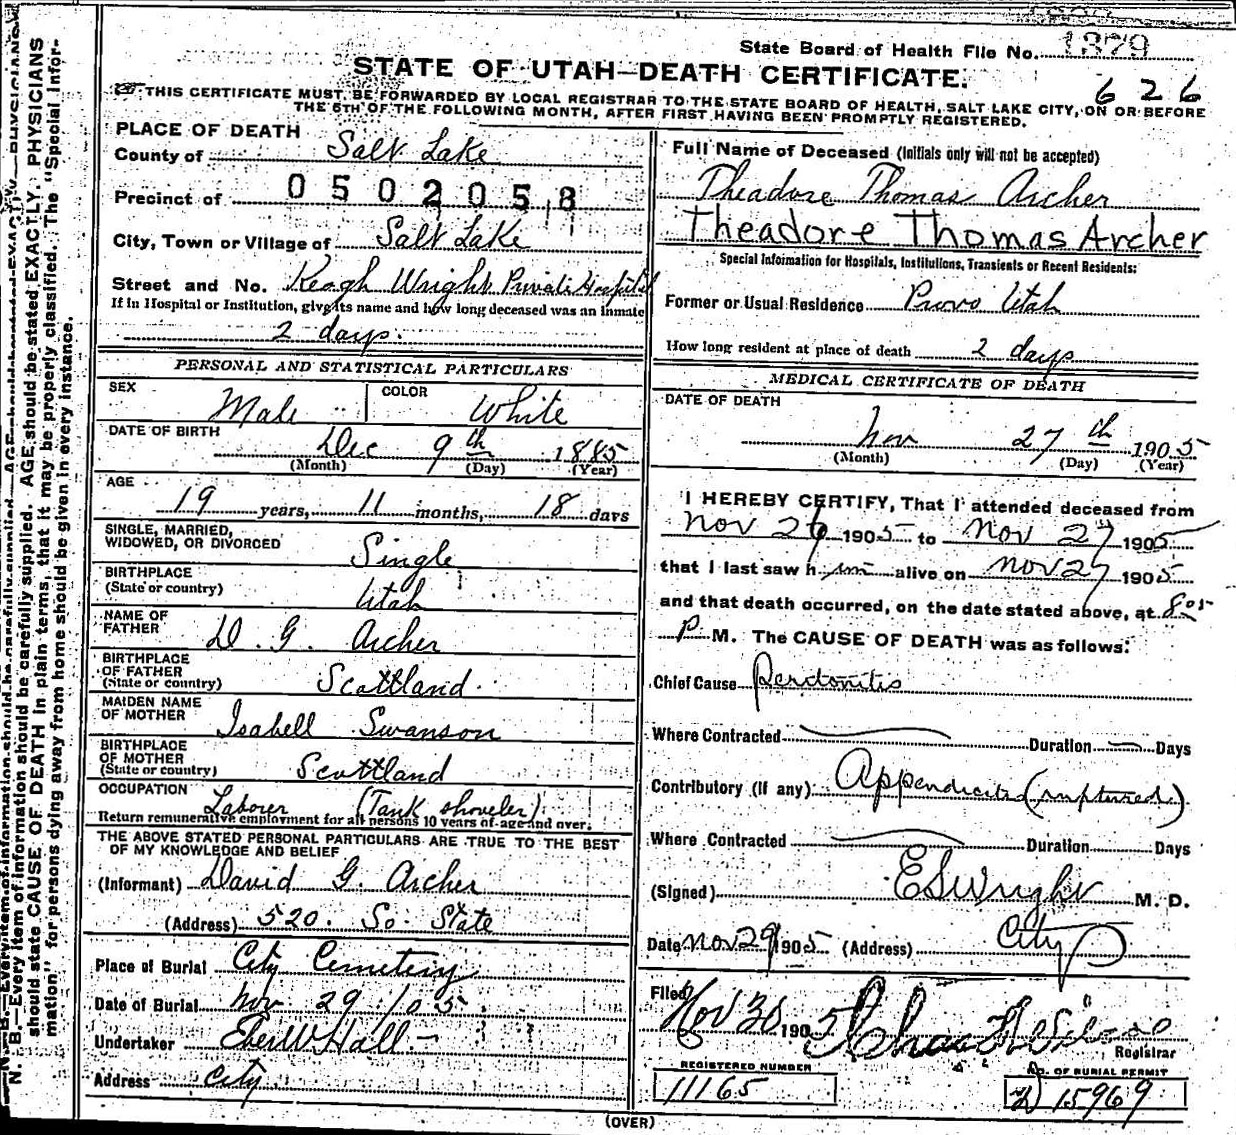 State Board of Health File No. 1379
STATE OF UTAH—DEATH CERTIFICATE.
626
THIS CERTIFICATE MUST BE FORWARDED BY LOCAL REGISTRAR TO THE STATE BOARD OF HEALTH, SALT LAKE CITY, ON OR BEFORE
THE 5TH OF THE FOLLOWING MONTH, AFTER FIRST HAVING BEEN PROMPTLY REGISTERED.
N. B.—Every item of information should be carefully supplied. AGE should be stated EXACTLY. PHYSICIANS
should state CAUSE OF DEATH in plain terms, that it may be properly classified. The "Special Infor-
mation" for persons dying away from home should be given in every instance.
PLACE OF DEATH
County of Salt Lake
Precinct of 0502058
City, Town or Village of Salt Lake
Street and No. Keogh Wright Private Hospital
If in Hospital or Institution, give its name and how long deceased was an inmate
2 days.
PERSONAL AND STATISTICAL PARTICULARS
SEX Male COLOR White
DATE OF BIRTH Dec 9th 1885
(Month) (Day) (Year)
AGE 19 years, 11 months, 18 days
SINGLE, MARRIED,
WIDOWED, OR DIVORCED Single
BIRTHPLACE
(State or country) Utah
NAME OF
FATHER D. G. Archer
BIRTHPLACE
OF FATHER
(State or country) Scottland
MAIDEN NAME
OF MOTHER Isabell Swanson
BIRTHPLACE
OF MOTHER
(State or country) Scottland
OCCUPATION Laborer (Tank shoveler)
Return remunerative employment for all persons 10 years of age and over.
THE ABOVE STATED PERSONAL PARTICULARS ARE TRUE TO THE BEST
OF MY KNOWLEDGE AND BELIEF
(Informant) David G. Archer
(Address) 520. So. State
Place of Burial City Cemetery
Date of Burial Nov 29 /05
Undertaker Eber W Hall
Address City
Full Name of Deceased (Initials only will not be accepted)
Theadore Thomas Archer
Theadore Thomas Archer
Special Information for Hospitals, Institutions, Transients or Recent Residents:
Former or Usual Residence Provo Utah
How long resident at place of death 2 days
MEDICAL CERTIFICATE OF DEATH
DATE OF DEATH
Nov 27th 1905
(Month) (Day) (Year)
I HEREBY CERTIFY, That I attended deceased from
Nov 26 1905 to Nov 27 1905
that I last saw him alive on Nov 27 1905
and that death occurred, on the date stated above, at 8:05
P M. The CAUSE OF DEATH was as follows:
Chief Cause Peritonitis
Where Contracted Duration Days
Contributory (if any) Appendicitis (ruptured.)
Where Contracted Duration Days
(Signed) E S Wright M. D.
Date Nov 29 1905 (Address) City
Filed Nov 30 1905
Registrar
REGISTERED NUMBER
11165
NO. OF BURIAL PERMIT
D 15969
(OVER)